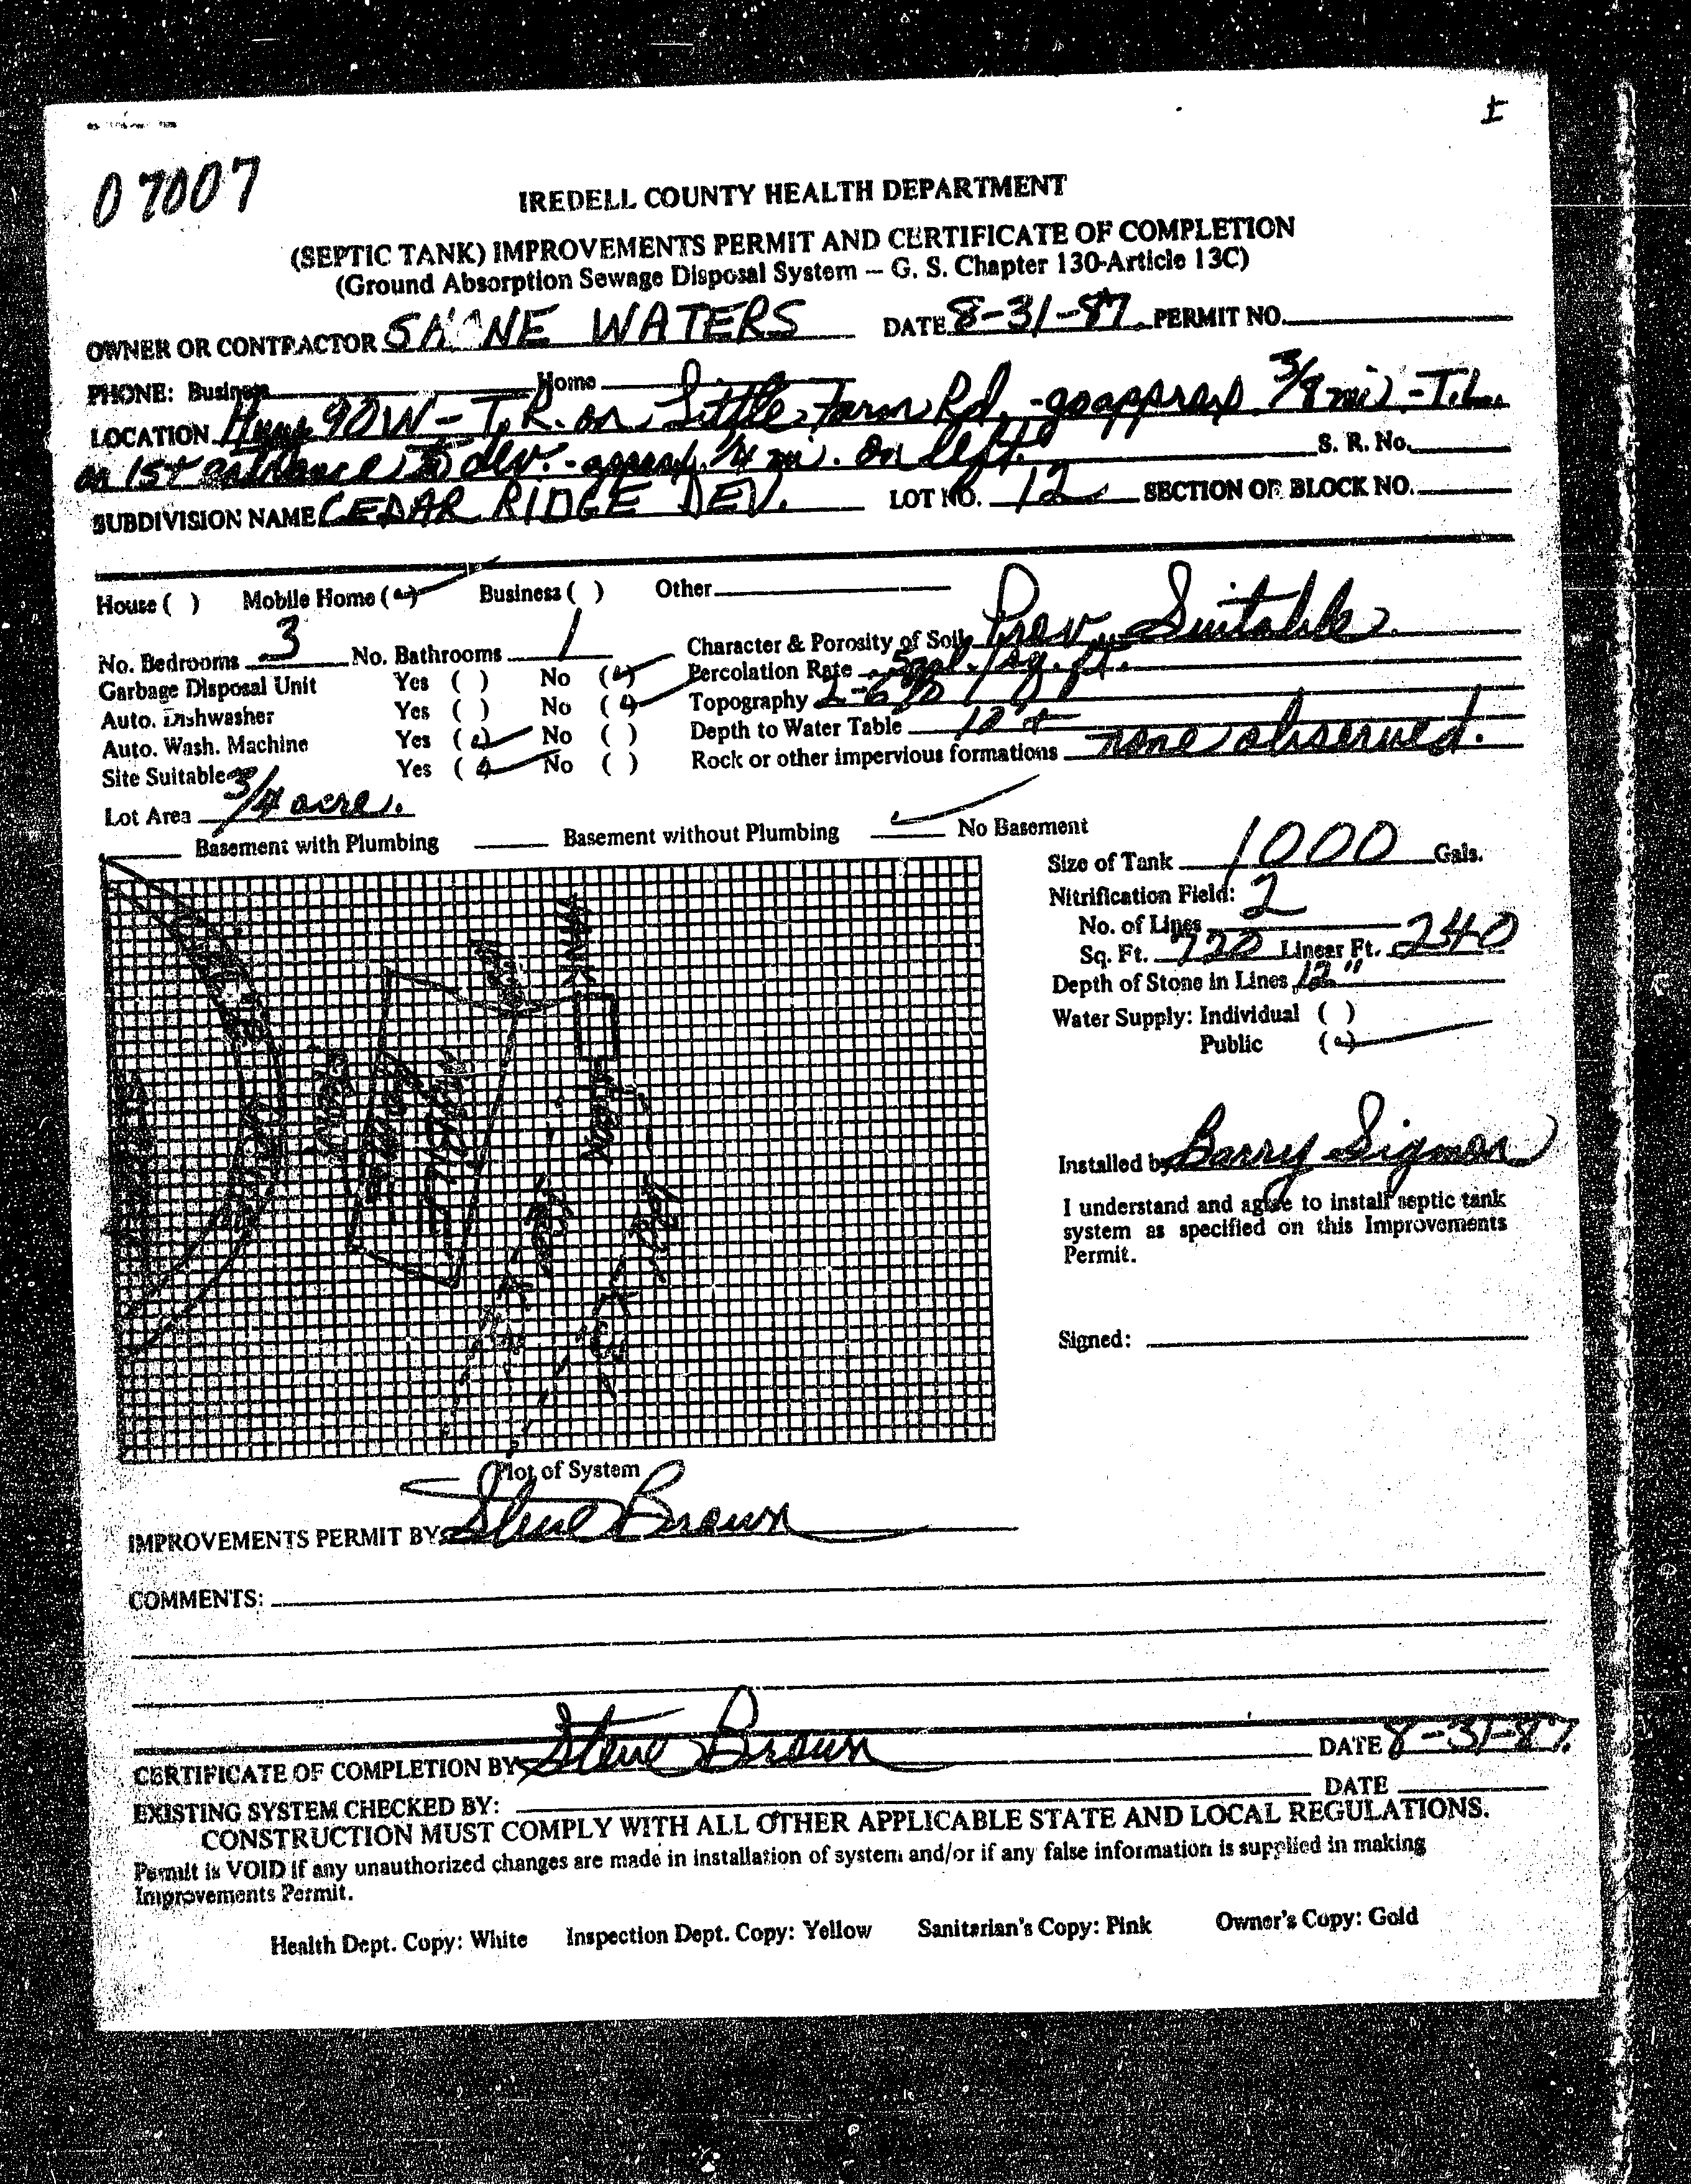 07007
IREDELL COUNTY HEALTH DEPARTMENT
(SEPTIC TANK) IMPROVEMENTS PERMIT AND CERTIFICATE OF COMPLETION
(Ground Absorption Sewage Disposal System – G. S. Chapter 130-Article 13C)
OWNER OR CONTRACTOR WATERS DATE 8-31-87 PERMIT NO.
PHONE: Business Home
LOCATION Hwy 90W - T.R. on Little Farm Rd. - go approx. 3/8 mi. - T.L.
on 1st entrance to dev. - approx. 1/4 mi. on left. S. R. No.
SUBDIVISION NAME CEDAR RIDGE DEV. LOT NO. 12 SECTION OR BLOCK NO.
House ( ) Mobile Home ( ) Business ( ) Other
No. Bedrooms 3 No. Bathrooms 1 Character & Porosity of Soil Prov. Suitable
Garbage Disposal Unit Yes ( ) No ( ) Percolation Rate gal./sq. ft.
Auto. Dishwasher Yes ( ) No ( ) Topography 2-6%
Auto. Wash. Machine Yes ( ) No ( ) Depth to Water Table
Site Suitable Yes ( ) No ( ) Rock or other impervious formations none observed.
Lot Area 3/4 acre.
Basement with Plumbing Basement without Plumbing No Basement
Size of Tank 1000 Gals.
Nitrification Field:
No. of Lines 2
Sq. Ft. 720 Linear Ft. 240
Depth of Stone in Lines 12"
Water Supply: Individual ( )
Public ( )
Installed by Barry Sigmon
I understand and agree to install septic tank
system as specified on this Improvements
Permit.
Signed:
Plot of System
IMPROVEMENTS PERMIT BY Steve Brown
COMMENTS:
CERTIFICATE OF COMPLETION BY Steve Brown DATE 8-31-87
EXISTING SYSTEM CHECKED BY: DATE
CONSTRUCTION MUST COMPLY WITH ALL OTHER APPLICABLE STATE AND LOCAL REGULATIONS.
Permit is VOID if any unauthorized changes are made in installation of system and/or if any false information is supplied in making
Improvements Permit.
Health Dept. Copy: White Inspection Dept. Copy: Yellow Sanitarian's Copy: Pink Owner's Copy: Gold